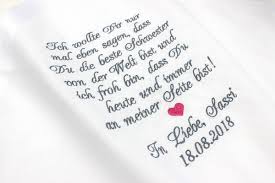 Ich wollte Dir nur
mal eben sagen, dass
Du die beste Schwester
von der Welt bist und
ich froh bin, dass Du
heute und immer
an meiner Seite bist!
In Liebe, Sassi
18.08.2018